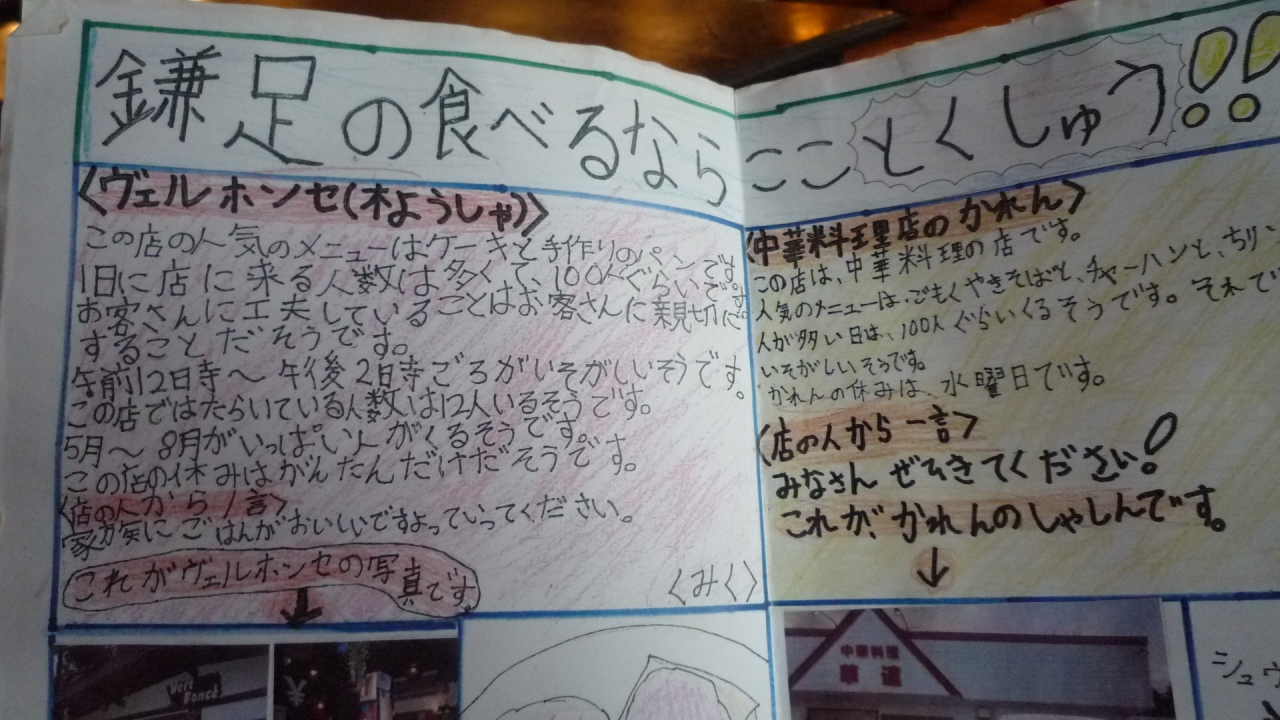 鎌足の食べるならここ とくしゅう!!
〈ヴェルホンセ(木ようしゃ)〉
この店の人気のメニューはケーキと手作りのパンです。
1日に店に来る人数は多くて、100人ぐらいです。
お客さんに工夫していることはお客さんに親切に
することだそうです。
午前12日寺〜午後2日寺ごろがいそがしいそうです。
この店ではたらいている人数は12人いるそうです。
5月〜8月がいっぱい人がくるそうです。
この店の休みはがんたんだけだそうです。
〈店の人から1言〉
家族にごはんがおいしいですよっていってください。
これがヴェルホンセの写真です
〈みく〉
〈中華料理店のかれん〉
この店は、中華料理の店です。
人気のメニューは、ごもくやきそばと、チャーハンと、ちり
人が多い日は、100人ぐらいくるそうです。それで
いそがしいそうです。
かれんの休みは、水曜日です。
〈店の人から一言〉
みなさんぜひきてください!
これが、かれんのしゃしんです。
中華料理
華蓮
シュウ